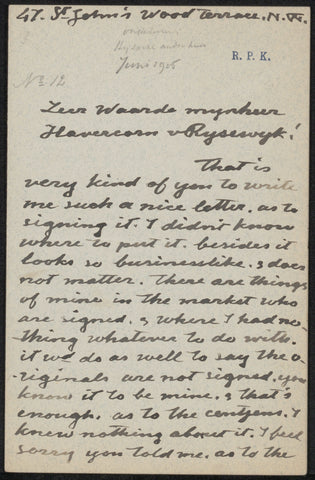 47. St. John's Wood Terrace. N.W.
Juni 1906
R. P. K.
No 12
Zeer Waarde mynheer
Havercorn v Rysewyk!
That is
very kind of you to write
me such a nice letter. as to
signing it. I didn't know
where to put it. besides it
looks so businesslike. & does
not matter. there are things
of mine in the market who
are signed. & where I had no-
thing whatever to do with.
it we do as well to say the o-
riginals are not signed. you
know it to be mine. & that's
enough. as to the centjens. I
knew nothing about it. I feel
sorry you told me. as to the